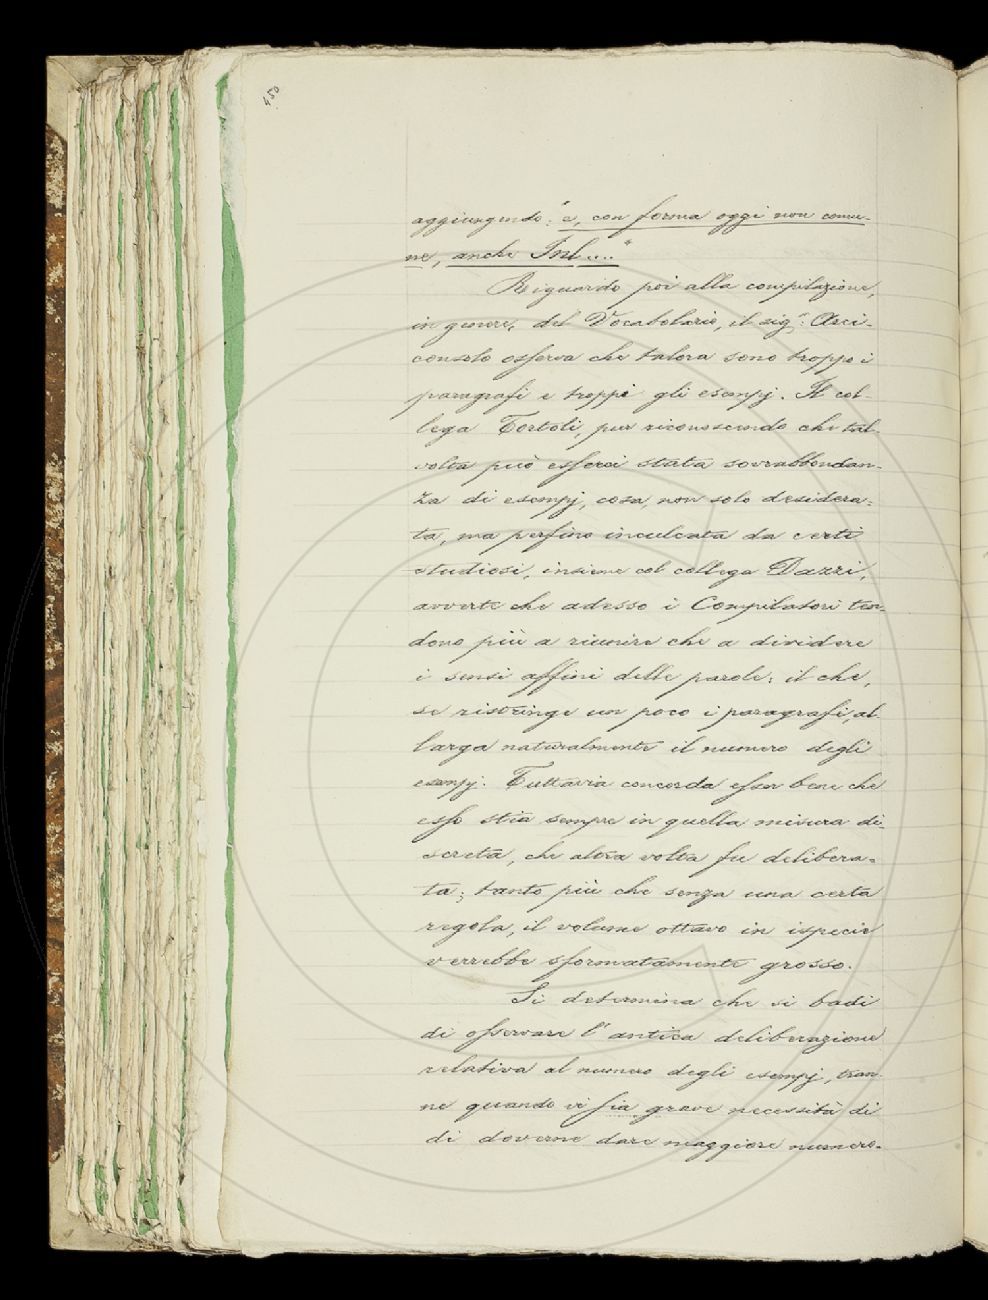 450
aggiungendo: "e, con forma oggi non comu-
ne, anche Inl...."
Riguardo poi alla compilazione,
in genere, del Vocabolario, il sig.r Arci-
consolo osserva che talora sono troppo i
paragrafi e troppi gli esempj. Il col-
lega Tortoli, pur riconoscendo che tal-
volta può esserci stata sovrabbondan-
za di esempj, cosa, non solo desidera-
ta, ma perfino inculcata da certi
studiosi, insieme col collega Dazzi,
avverte che adesso i Compilatori ten-
dono più a riunire che a dividere
i sensi affini delle parole: il che,
se ristringe un poco i paragrafi, al-
larga naturalmente il numero degli
esempj. Tuttavia concorda esser bene che
esso stia sempre in quella misura di-
screta, che altra volta fu delibera-
ta; tanto più che senza una certa
regola, il volume ottavo in ispecie
verrebbe sformatamente grosso.
Si determina che si badi
di osservare l'antica deliberazione
relativa al numero degli esempj, tran-
ne quando vi sia grave necessità di
di doverne dare maggiore numero.